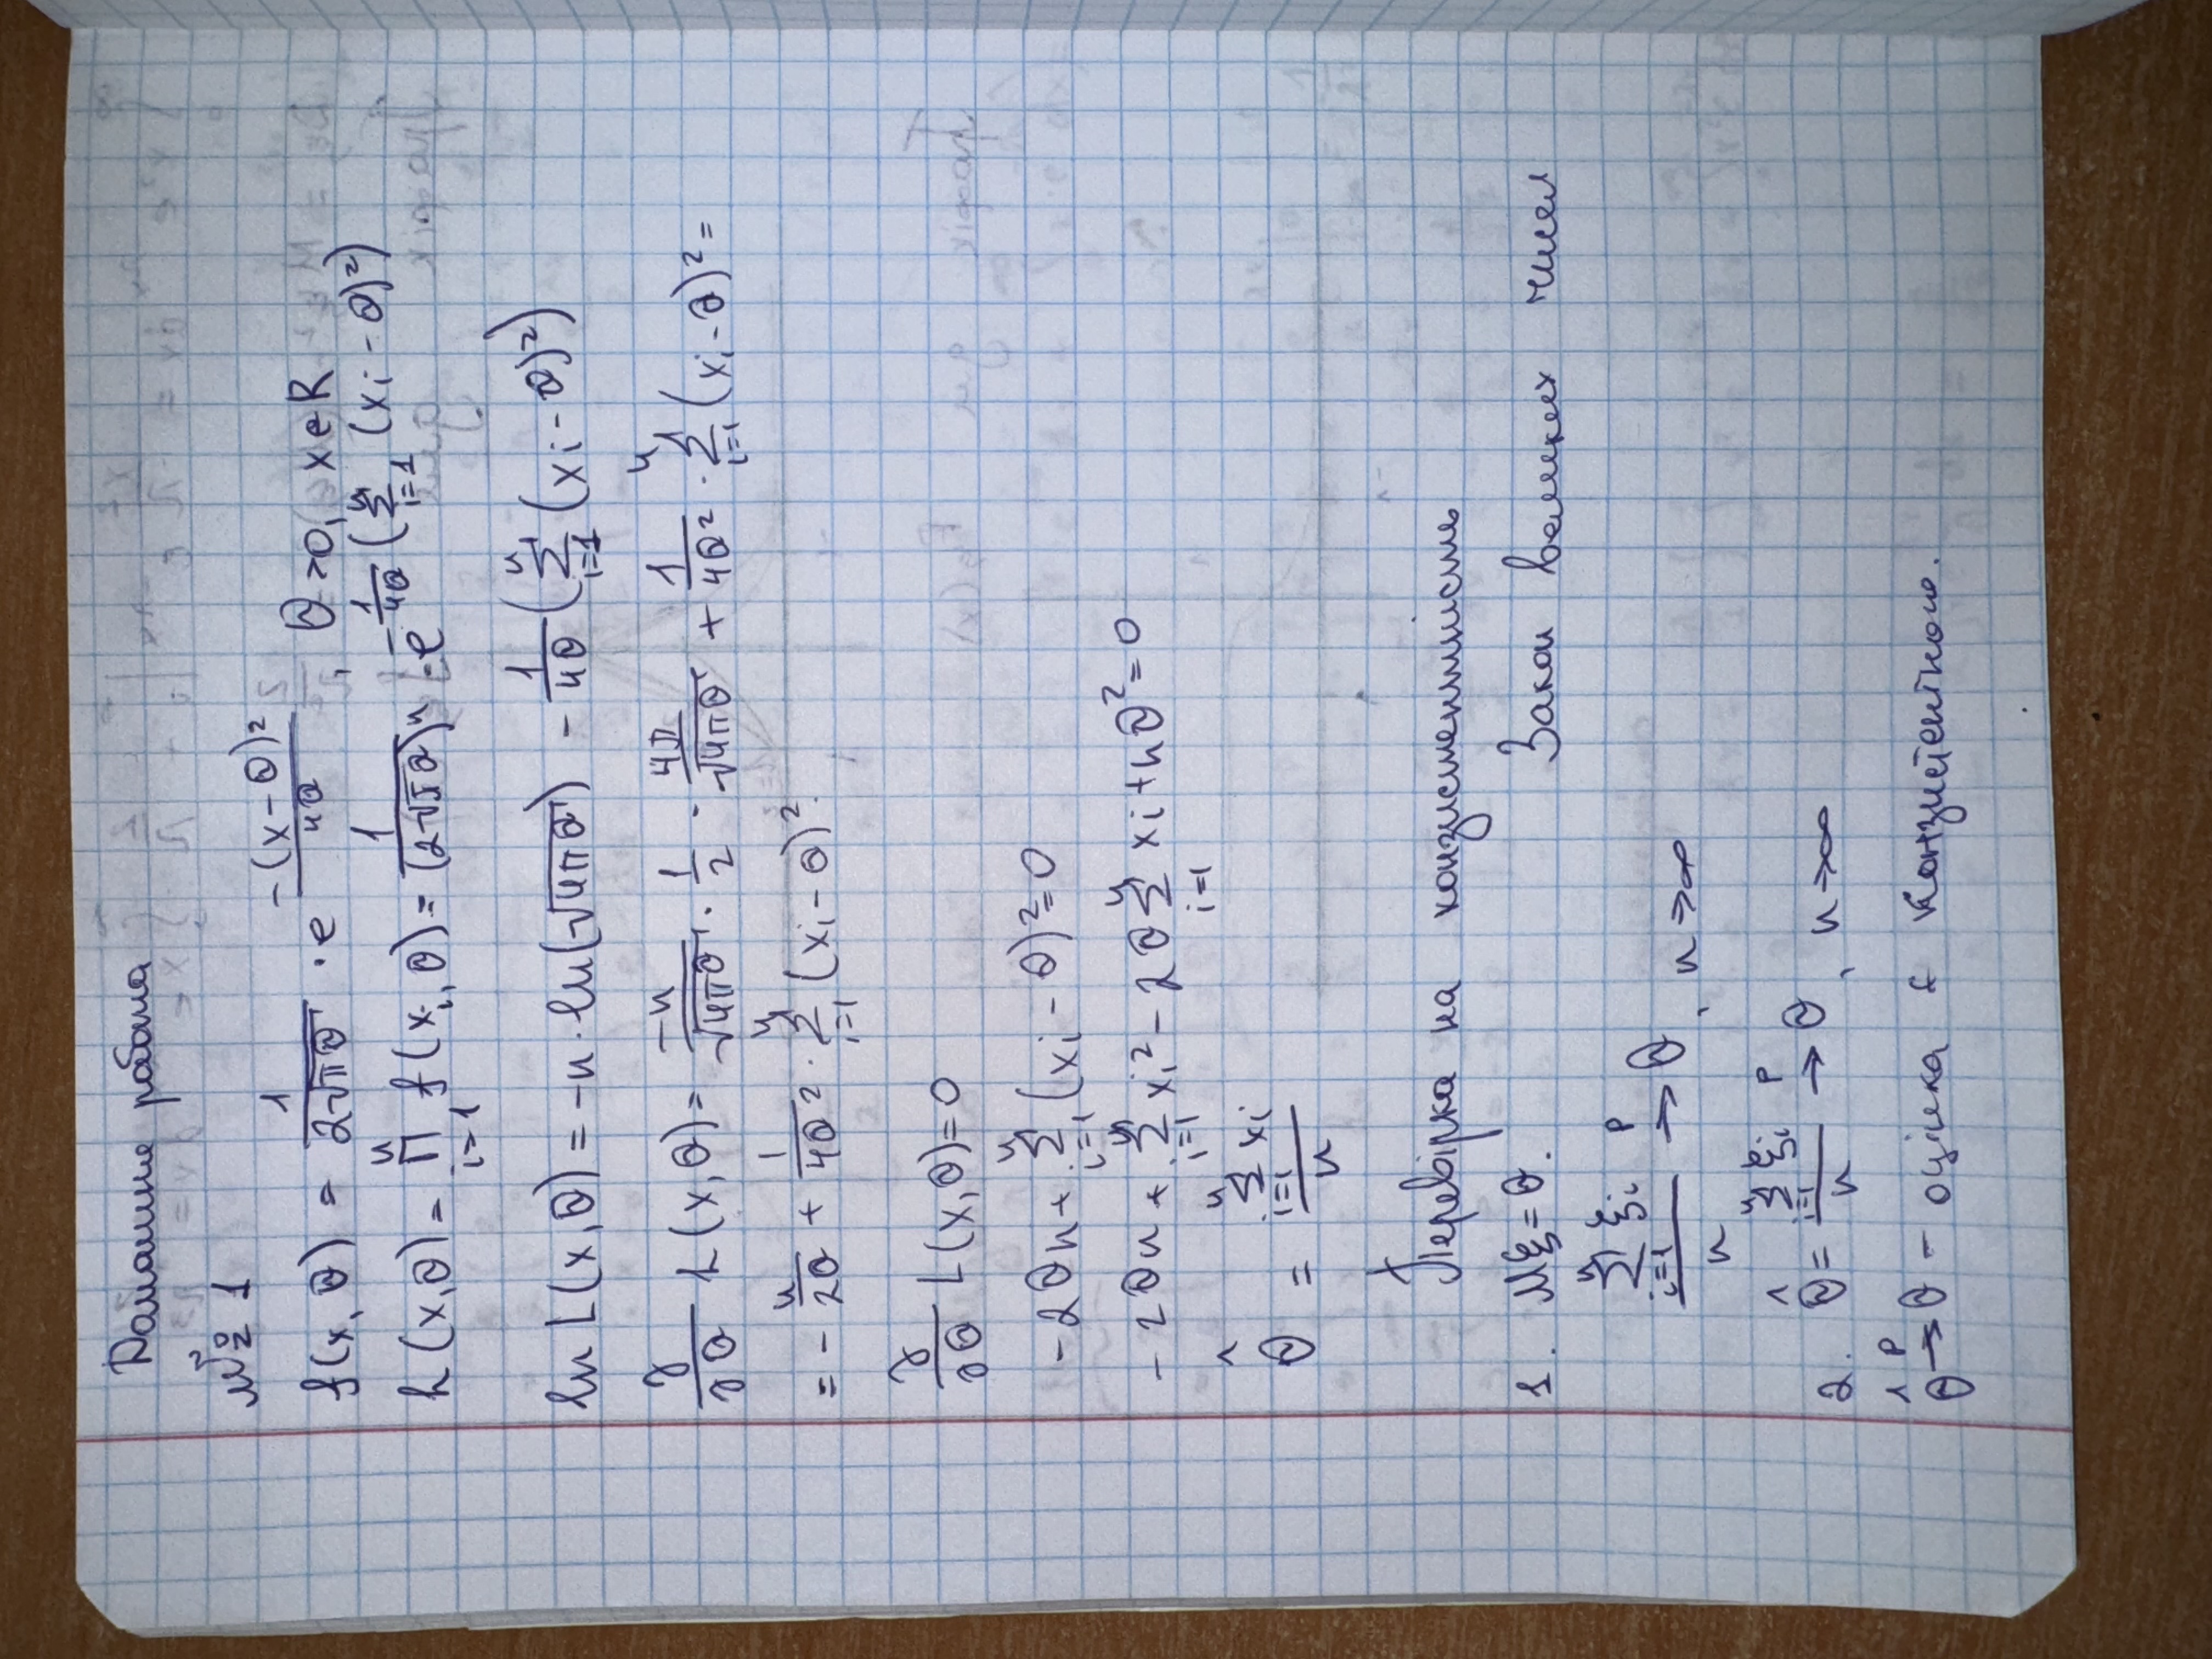 Домашня робота
№ 1
f(x, θ) = 1/(2√(πθ)) · e^(-(x-θ)²/(4θ)), θ>0, x∈R
L(x,θ) = ∏_{i=1}^{n} f(x_i, θ) = 1/(2√(πθ))^n · e^(-1/(4θ) (∑_{i=1}^{n} (x_i - θ)²))
ln L(x,θ) = -n · ln(√(4πθ)) - 1/(4θ) (∑_{i=1}^{n} (x_i - θ)²)
∂/∂θ L(x,θ) = -n/√(4πθ) · 1/2 · 4π/√(4πθ) + 1/(4θ²) · ∑_{i=1}^{n} (x_i - θ)² =
= - n/(2θ) + 1/(4θ²) · ∑_{i=1}^{n} (x_i - θ)²
∂/∂θ L(x,θ) = 0
-2θn + ∑_{i=1}^{n} (x_i - θ)² = 0
-2θn + ∑_{i=1}^{n} x_i² - 2θ ∑_{i=1}^{n} x_i + nθ² = 0
θ̂ = (∑_{i=1}^{n} x_i)/n
Перевірка на конзистентність
1. Mξ = θ. Закон великих чисел
(∑_{i=1}^{n} ξ_i)/n →^P θ, n→∞
2. θ̂ = (∑_{i=1}^{n} ξ_i)/n →^P θ, n→∞
θ̂ →^P θ – оцінка є конзистентною.